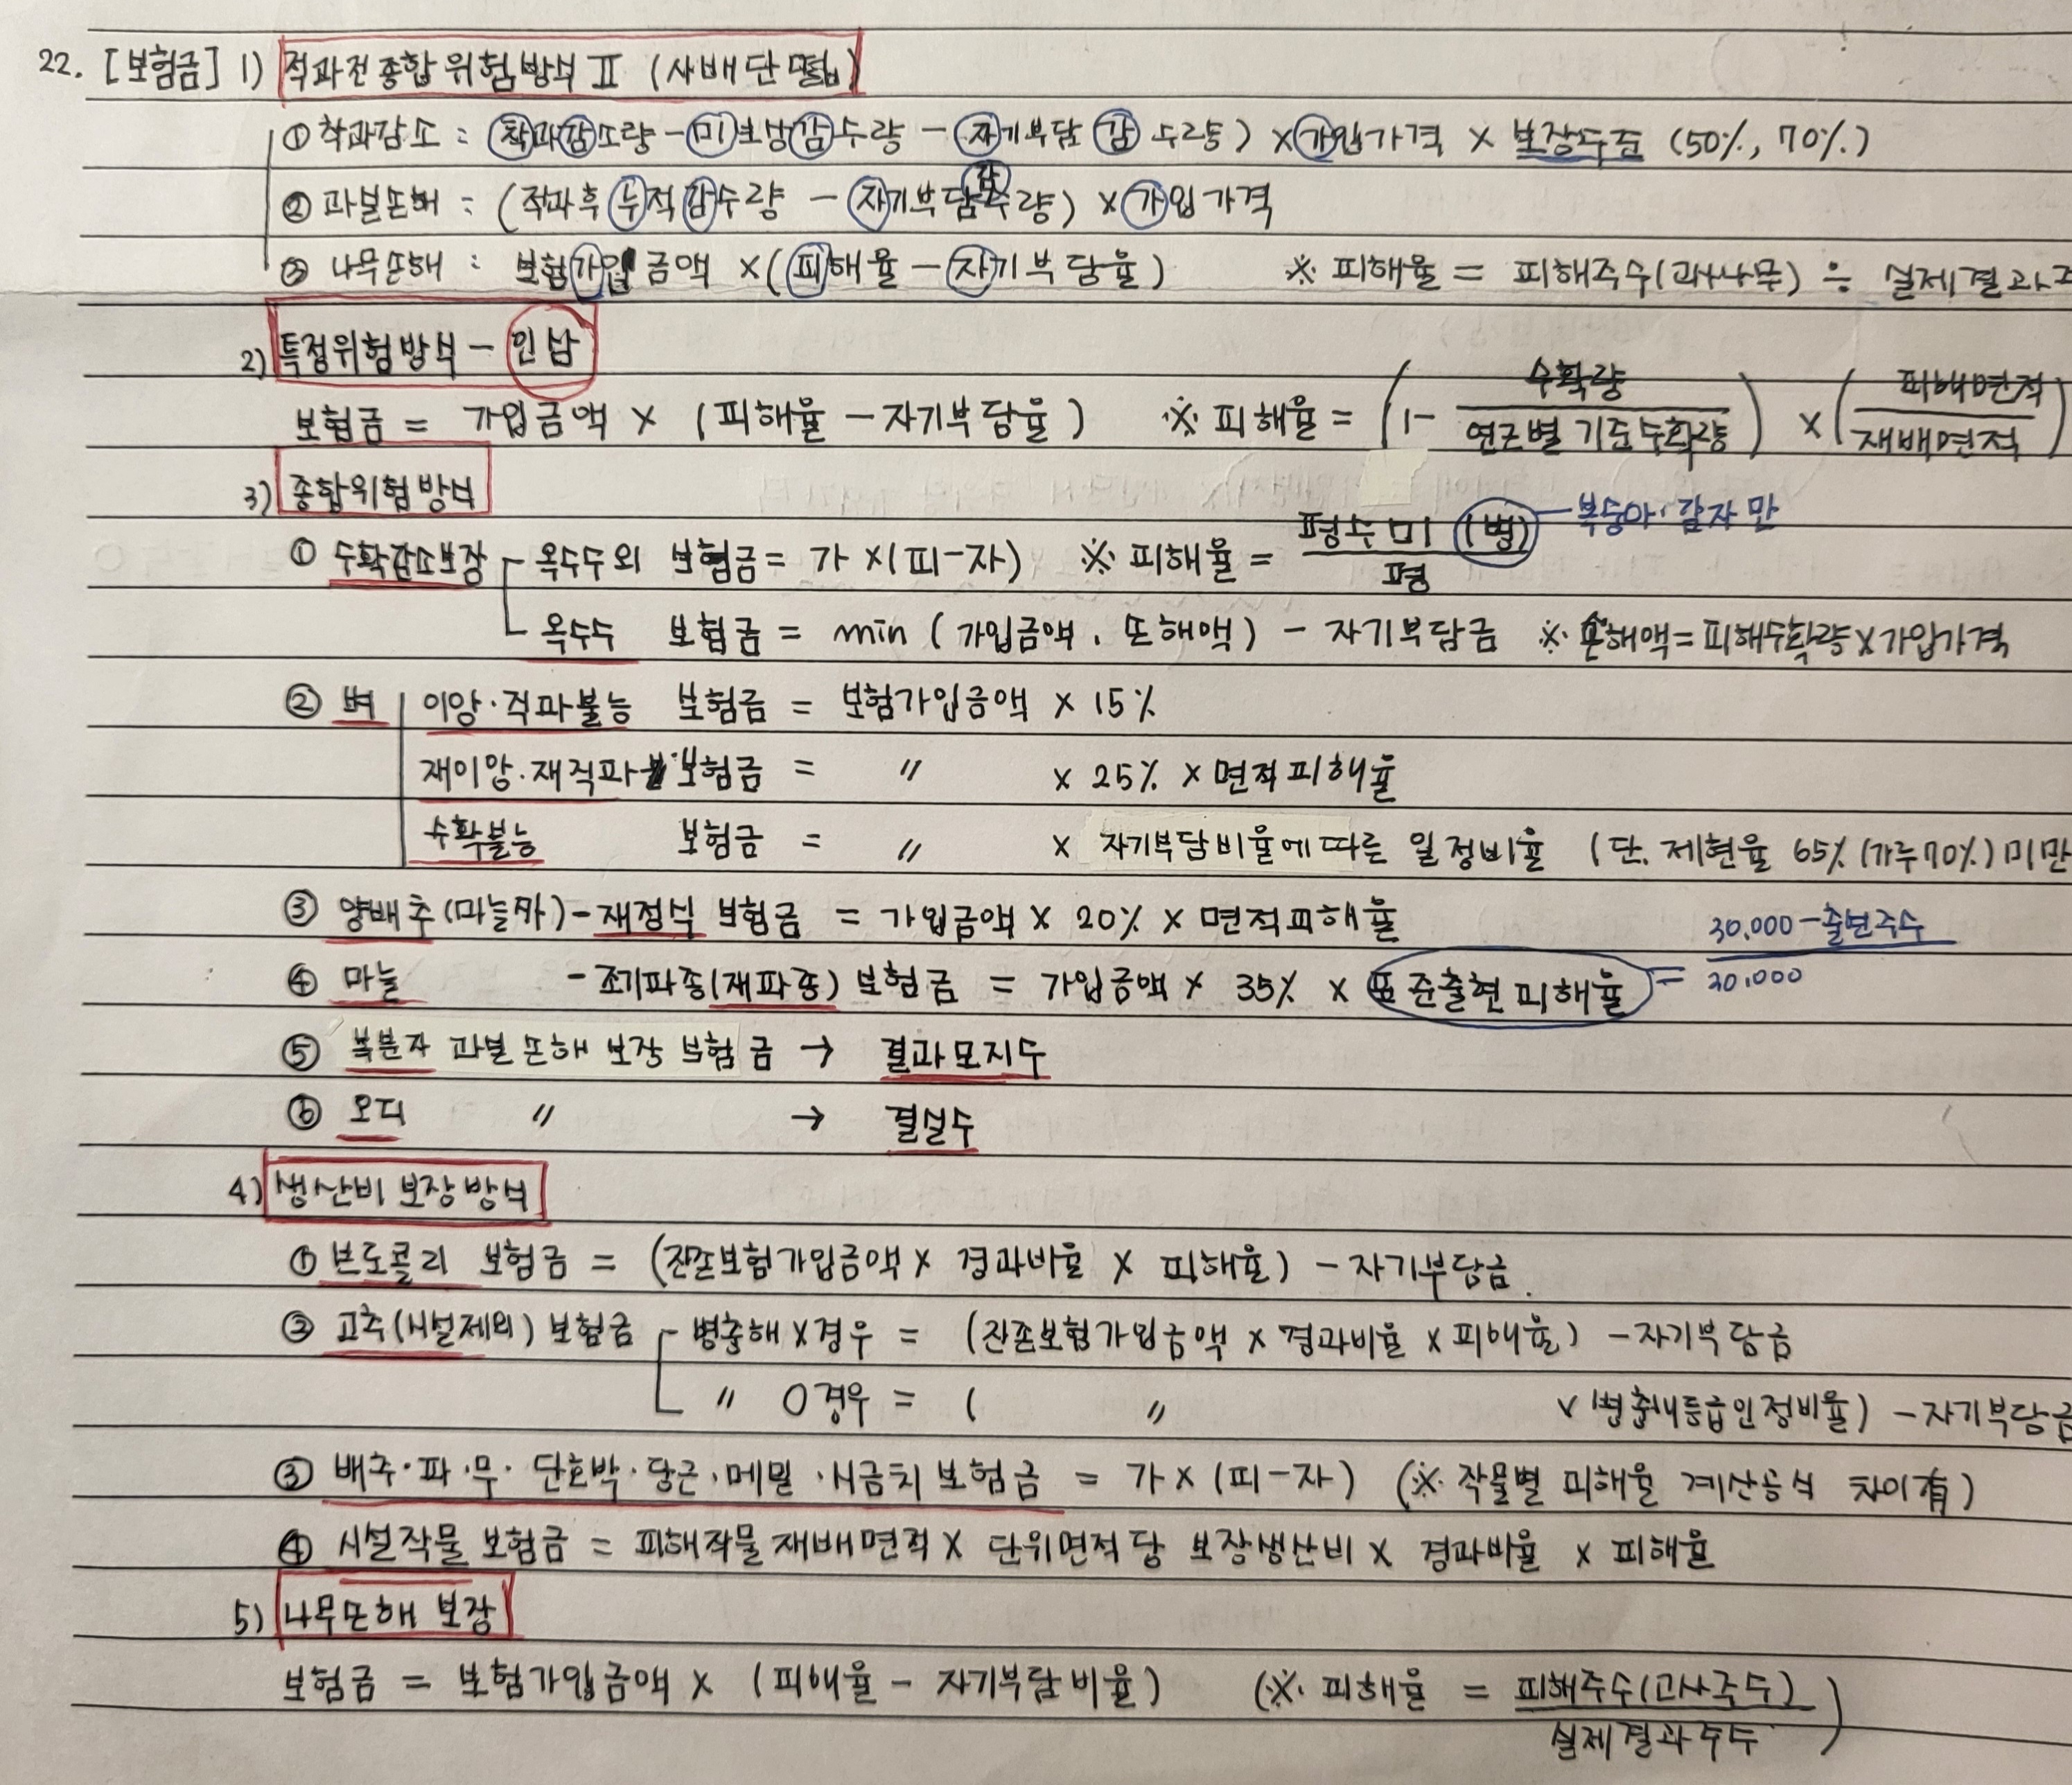 22. [보험금] 1) 적과전종합위험방식 Ⅱ (사배단떫)
① 착과감소 : 착과감소량 - 미보상감수량 - 자기부담감수량) × 가입가격 × 보장수준 (50%, 70%)
② 과실손해 : (적과후누적감수량 - 자기부담감수량) × 가입가격
③ 나무손해 : 보험가입금액 ×(피해율 - 자기부담율) ※ 피해율 = 피해주수(고사나무) ÷ 실제결과주
2) 특정위험방식 - 인삼
보험금 = 가입금액 × (피해율 - 자기부담율) ※ 피해율 = (1 - 수확량/연근별 기준수확량) × (피해면적/재배면적)
3) 종합위험방식
① 수확감소보장 옥수수외 보험금 = 가 ×(피-자) ※ 피해율 = 평수미(병)/평 - 복숭아·감자만
옥수수 보험금 = min (가입금액, 손해액) - 자기부담금 ※ 손해액 = 피해수확량×가입가격
② 벼 이앙·직파불능 보험금 = 보험가입금액 × 15%
재이앙·재직파 보험금 = 〃 × 25% × 면적피해율
수확불능 보험금 = 〃 × 자기부담비율에따른 일정비율 (단, 제현율 65% (가루70%)미만
③ 양배추(마늘까) - 재정식 보험금 = 가입금액 × 20% × 면적피해율
④ 마늘 - 조기파종(재파종) 보험금 = 가입금액 × 35% × 표준출현피해율 = 30,000-출현주수/30,000
⑤ 복분자 과실손해보장 보험금 → 결과모지수
⑥ 오디 〃 → 결실수
4) 생산비보장방식
① 브로콜리 보험금 = (잔존보험가입금액× 경과비율 × 피해율) - 자기부담금
② 고추(시설제외) 보험금 병충해×경우 = (잔존보험가입금액 × 경과비율 × 피해율) - 자기부담금
〃 O경우 = ( 〃 × 병충해등급인정비율) - 자기부담금
③ 배추·파·무·단호박·당근·메밀·시금치 보험금 = 가×(피-자) (※ 작물별 피해율 계산공식 차이有)
④ 시설작물 보험금 = 피해작물재배면적× 단위면적당 보장생산비 × 경과비율 × 피해율
5) 나무손해 보장
보험금 = 보험가입금액 × (피해율 - 자기부담비율) (※ 피해율 = 피해주수(고사주수)/실제결과주수)